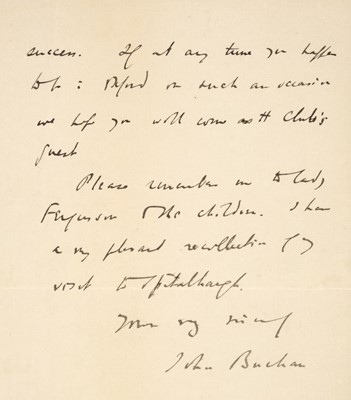 success. If at any time you happen
to be in Oxford on such an occasion
we hope you will come as the Club's
guest
Please remember me to Lady
Ferguson & the children. I have
a very pleasant recollection of my
visit to Spitalhaugh.
Yours very sincerely
John Buchan